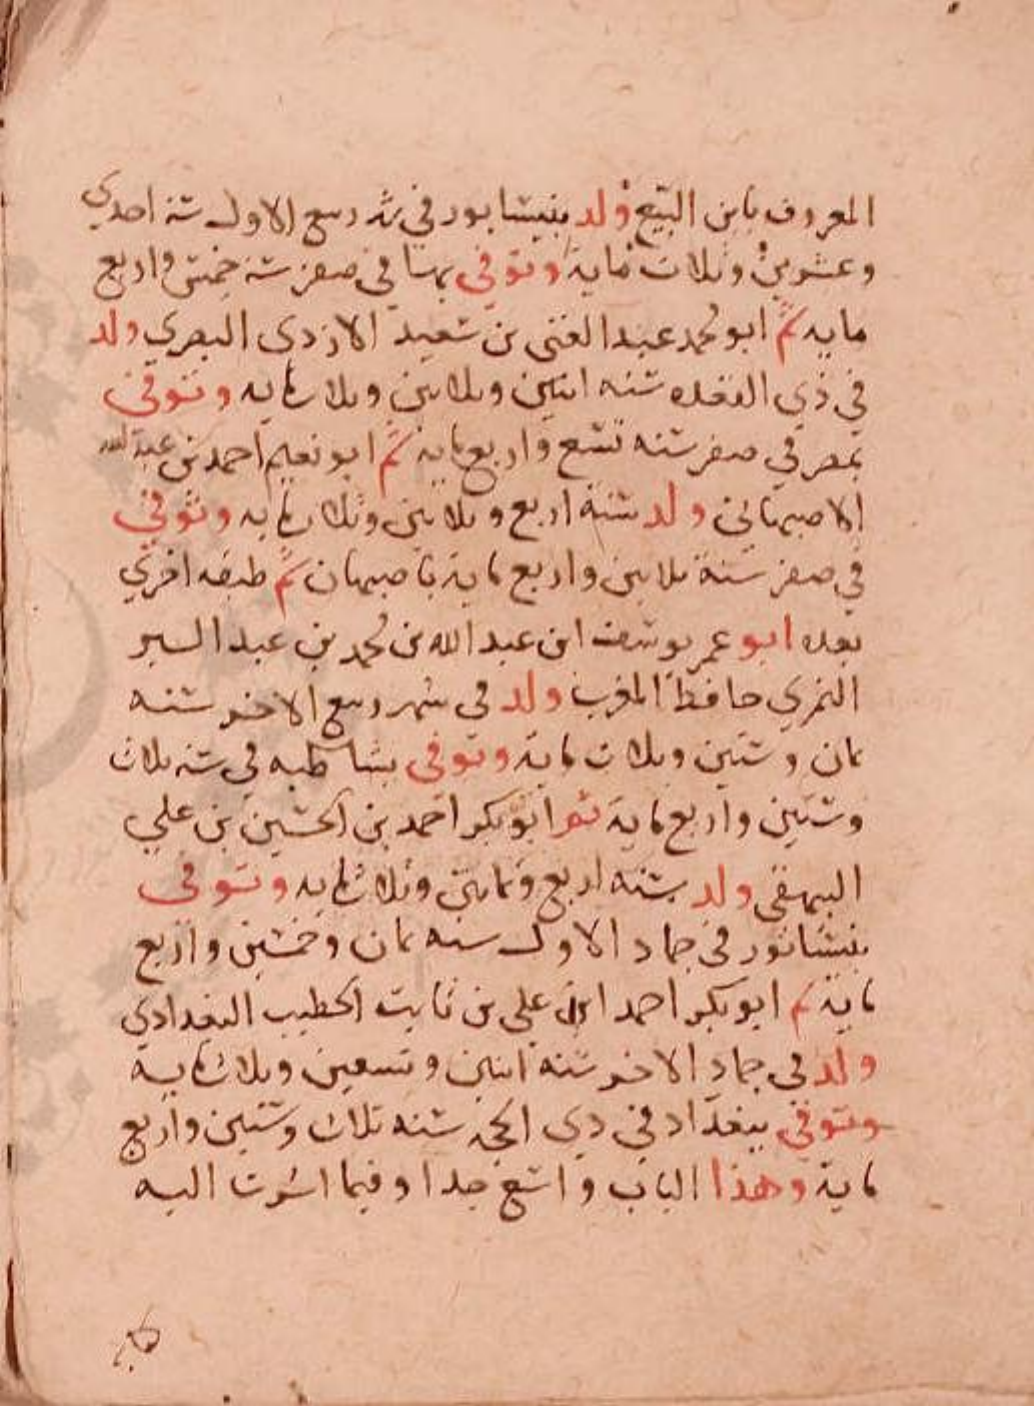 المعروف بابن البيع ولد بنيسابور في شهر ربيع الاول سنة احدي
وعشرين وثلاث مايه وتوفي بها في صفر سنة خمس واربع
مايه ثم ابو محمد عبد الغني بن سعيد الازدي المصري ولد
في ذي القعده سنه اثنين وثلاثين وثلاث مايه وتوفي
بمصر في صفر سنه تسع واربع مايه ثم ابو نعيم احمد بن عبد الله
الاصبهاني ولد سنة اربع وثلاثين وثلاث مايه وتوفي
في صفر سنة ثلاثين واربع ماية باصبهان ثم طبقه اخري
بعده ابو عمر يوسف ابن عبد الله بن محمد بن عبد البر
النمري حافظ المغرب ولد في شهر ربيع الاخر سنه
ثمان وستين وثلاث ماية وتوفي بشاطبه في سنه ثلاث
وستين واربع ماية ثم ابو بكر احمد بن الحسين بن علي
البيهقي ولد سنه اربع وثمانين وثلاث مايه وتوفي
بنيسابور في جماد الاول سنه ثمان وخمسين واربع
ماية ثم ابو بكر احمد ابن علي بن ثابت الخطيب البغدادي
ولد في جماد الاخر سنه اثنين وتسعين وثلاث ماية
وتوفي ببغداد في ذي الحجه سنه ثلاث وستين واربع
ماية وهذا الباب واسع جدا وفيما اشرت اليه